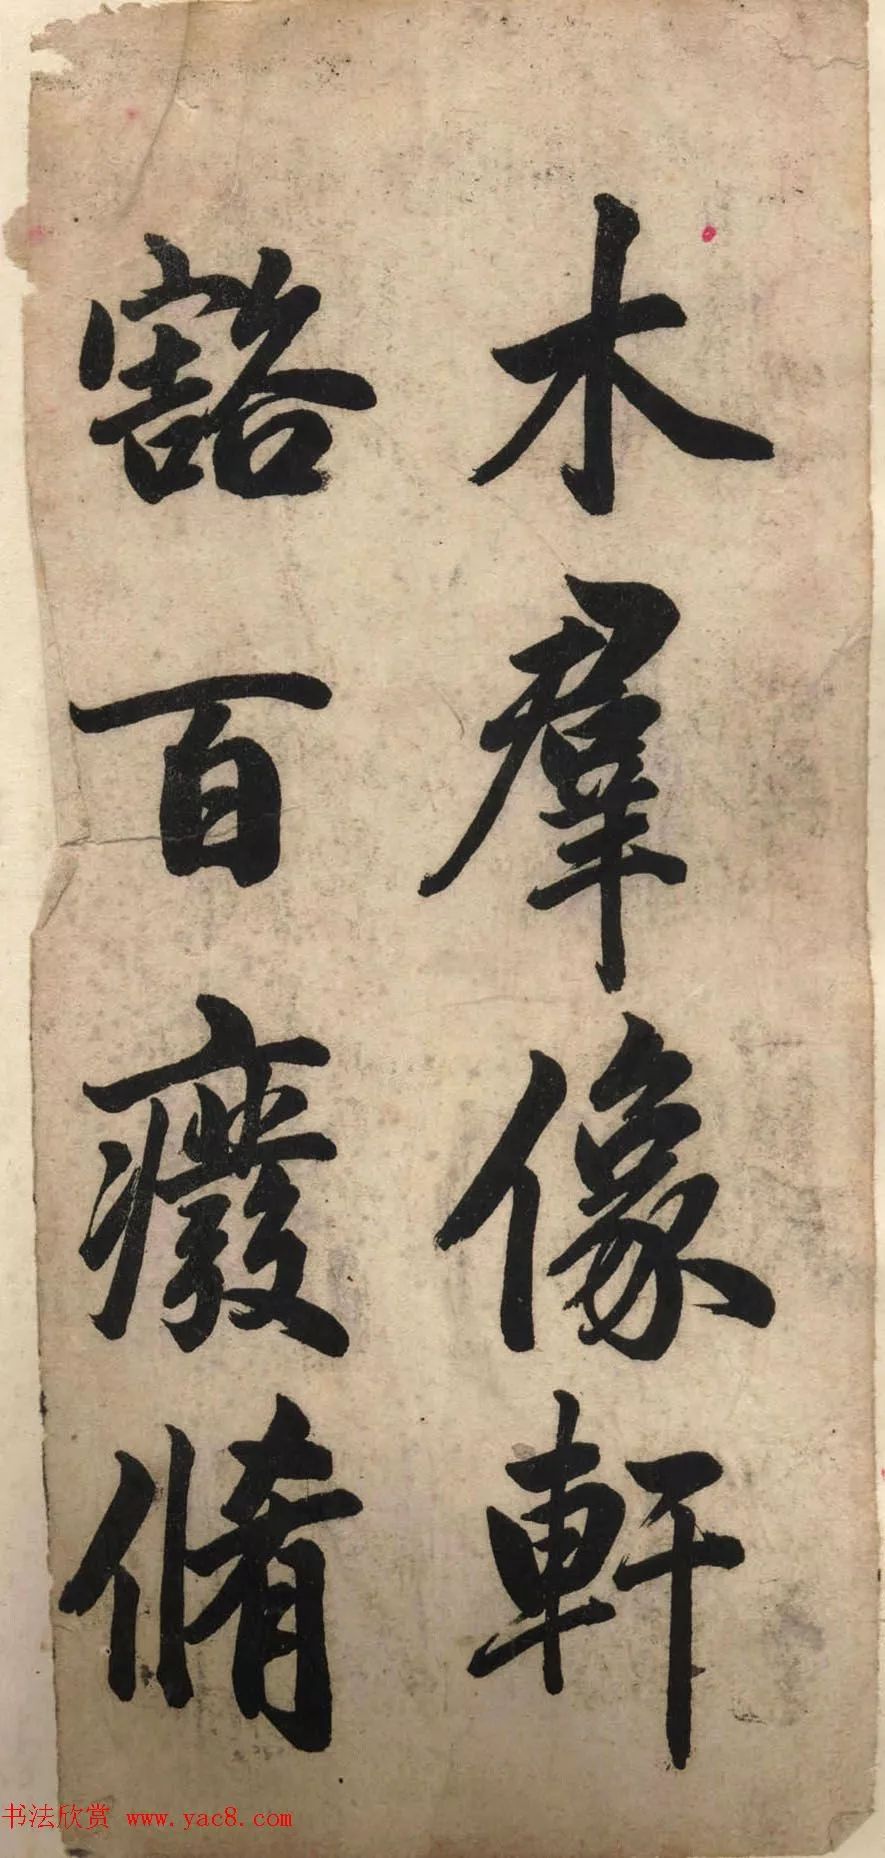 木羣像軒
豁百癈脩
书法欣赏 www.yac8.com